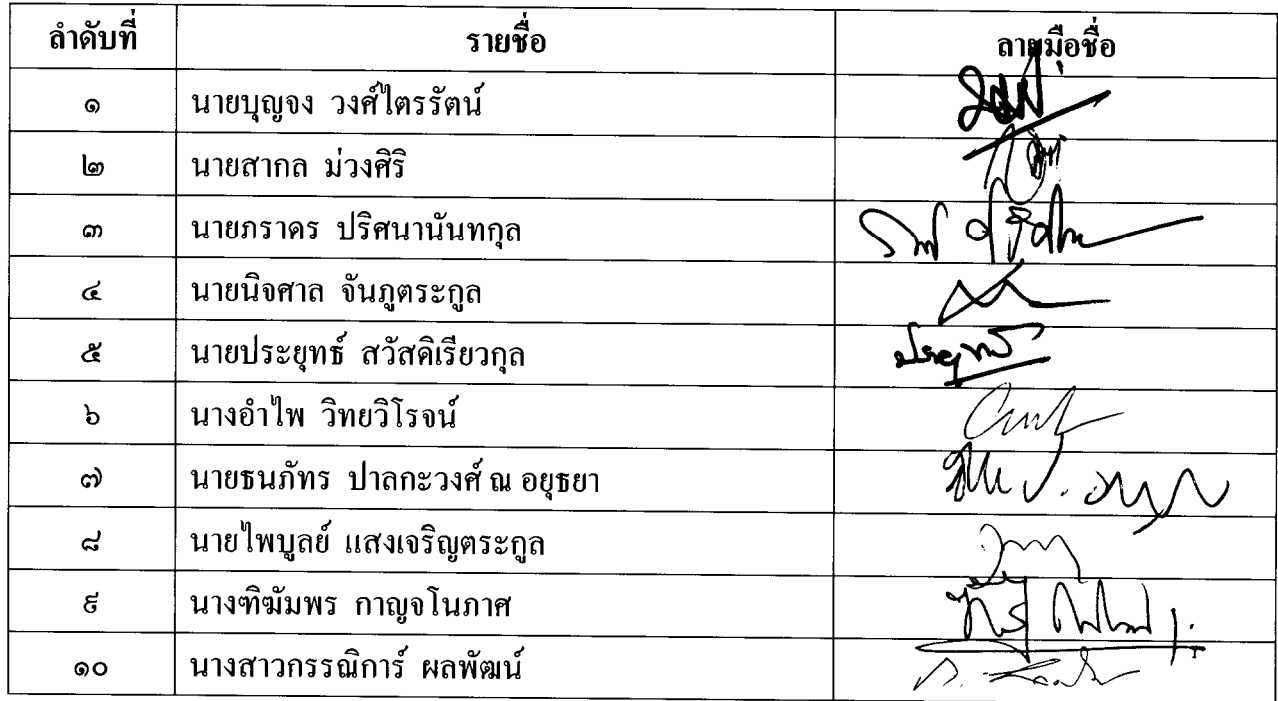 ลำดับที่ รายชื่อ ลายมือชื่อ
๑ นายบุญจง วงศ์ไตรรัตน์
๒ นายสากล ม่วงศิริ
๓ นายภราดร ปริศนานันทกุล
๔ นายนิจศาล จันภูตระกูล
๕ นายประยุทธ์ สวัสดิเรียวกุล ประยุทธ์
๖ นางอำไพ วิทยวิโรจน์
๗ นายธนภัทร ปาลกะวงศ์ ณ อยุธยา
๘ นายไพบูลย์ แสงเจริญตระกูล
๙ นางฑิฆัมพร กาญจโนภาศ
๑๐ นางสาวกรรณิการ์ ผลพัฒน์